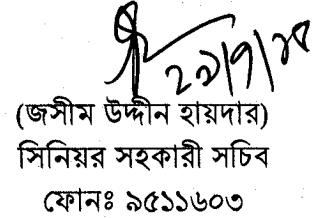 ২৯/৭/১৮
(জসীম উদ্দীন হায়দার)
সিনিয়র সহকারী সচিব
ফোনঃ ৯৫১১৬০৩